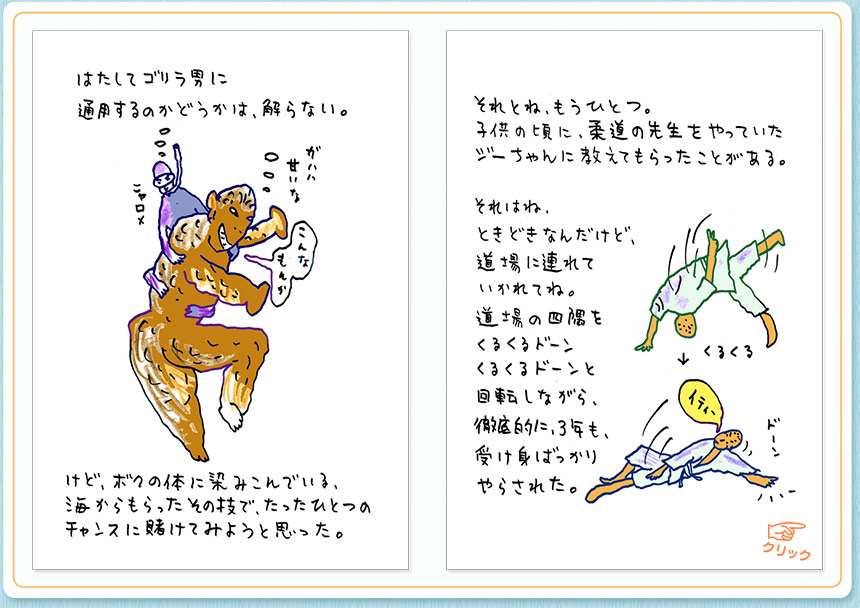 はたしてゴリラ男に
通用するのかどうかは、解らない。
ガハハ
甘いな
ニャロメ
こんな
もんか
けど、ボクの体に染みこんでいる、
海からもらったその技で、たったひとつの
チャンスに賭けてみようと思った。
それとね、もうひとつ。
子供の頃に、柔道の先生をやっていた
ジーちゃんに教えてもらったことがある。
それはね、
ときどきなんだけど、
道場に連れて
いかれてね。
道場の四隅を
くるくるドーン
くるくるドーンと
回転しながら、
徹底的に、3年も、
受け身ばっかり
やらされた。
↓ くるくる
イティー
ドーン
クリック